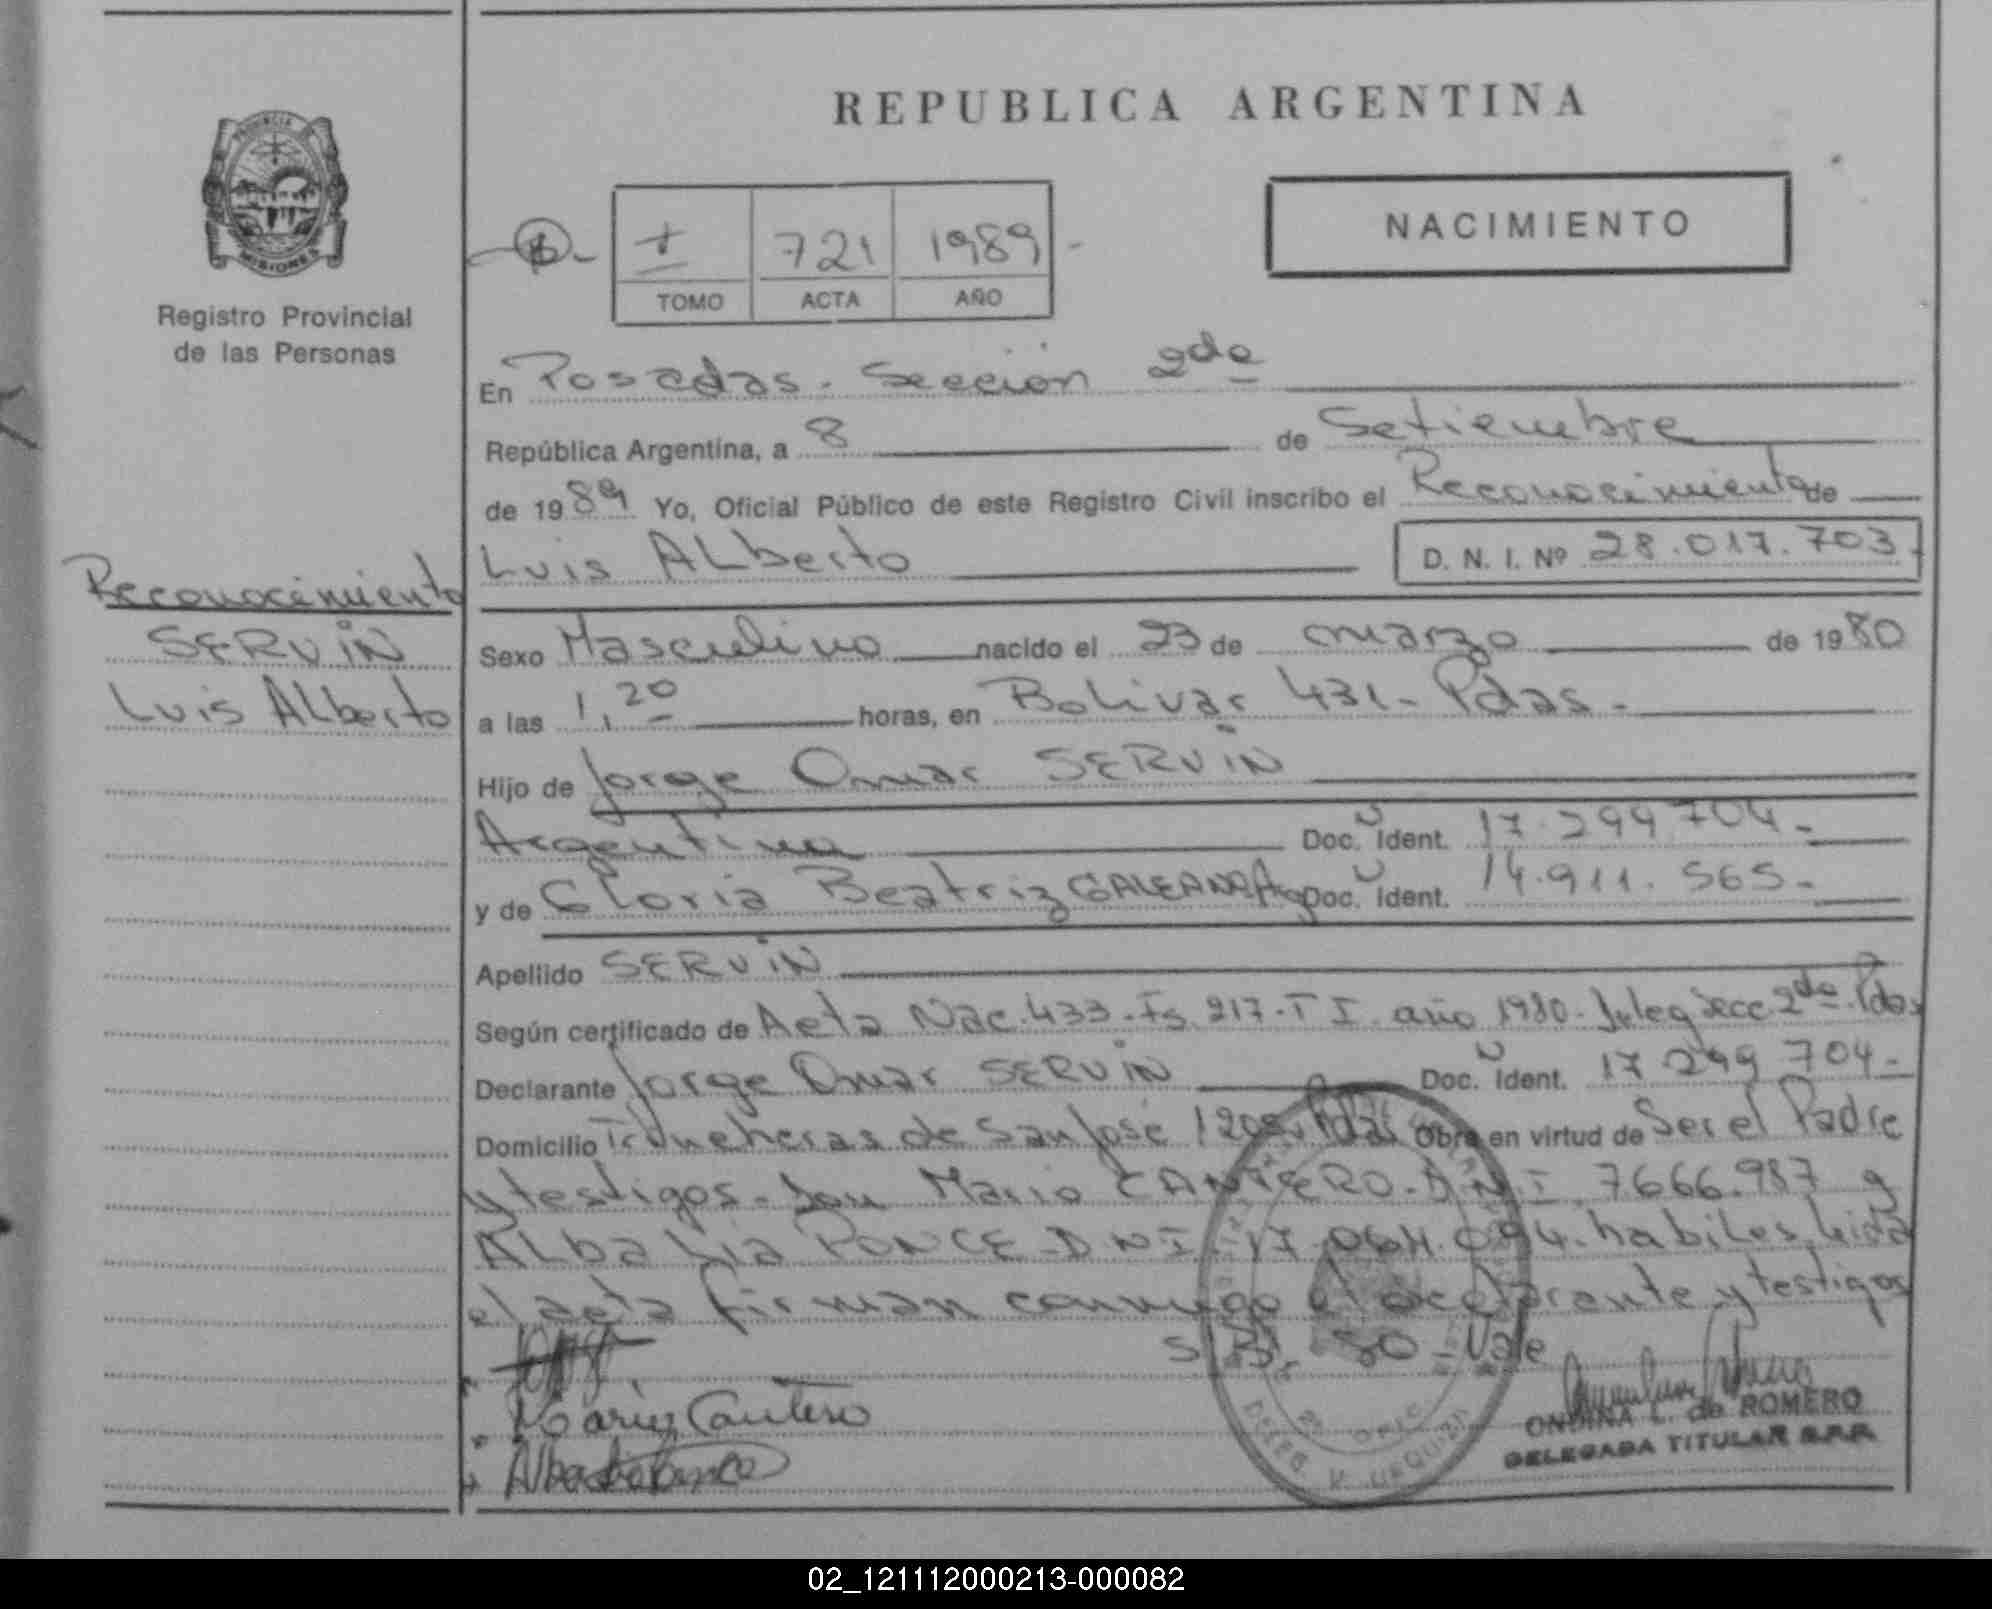 REPUBLICA ARGENTINA
PROVINCIA
MISIONES
Registro Provincial
de las Personas
NACIMIENTO
I 721 1989
TOMO ACTA AÑO
En Posadas. Sección 2da
República Argentina, a 8 de Setiembre
de 1989 Yo, Oficial Público de este Registro Civil inscribo el Reconocimiento de
Luis ALberto D. N. I. Nº 28.017.703.
Reconocimiento
SERVIN
Luis ALberto
Sexo Masculino nacido el 23 de marzo de 1980
a las 1,20 horas, en Bolivar 431- Pdas.-
Hijo de Jorge Omar SERVIN
Argentina Doc. Ident. 17.299.704-
y de Gloria Beatriz GALEANO Arg Doc. Ident. 14.911.565-
Apellido SERVIN
Según certificado de Acta Nac. 433- Fs. 217- T I. año 1980- Secc. 2da Pdas
Declarante Jorge Omar SERVIN Doc. Ident. 17.299.704-
Domicilio Trincheras de San José Pdas Obra en virtud de Ser el Padre
y testigos- Mario CANTERO- D.N.I. 7666.987 y
ALba Lia PONCE- DNI- 17.064.094. habiles, leida
el acta firman conmigo el declarante y testigos
S.B. 80- Vale
Mario Cantero
ONDINA L. de ROMERO
DELEGADA TITULAR R.P.P.
02_121112000213-000082